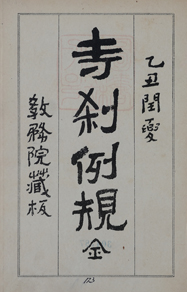 乙丑閏夏
寺刹例規 全
教務院藏板
123